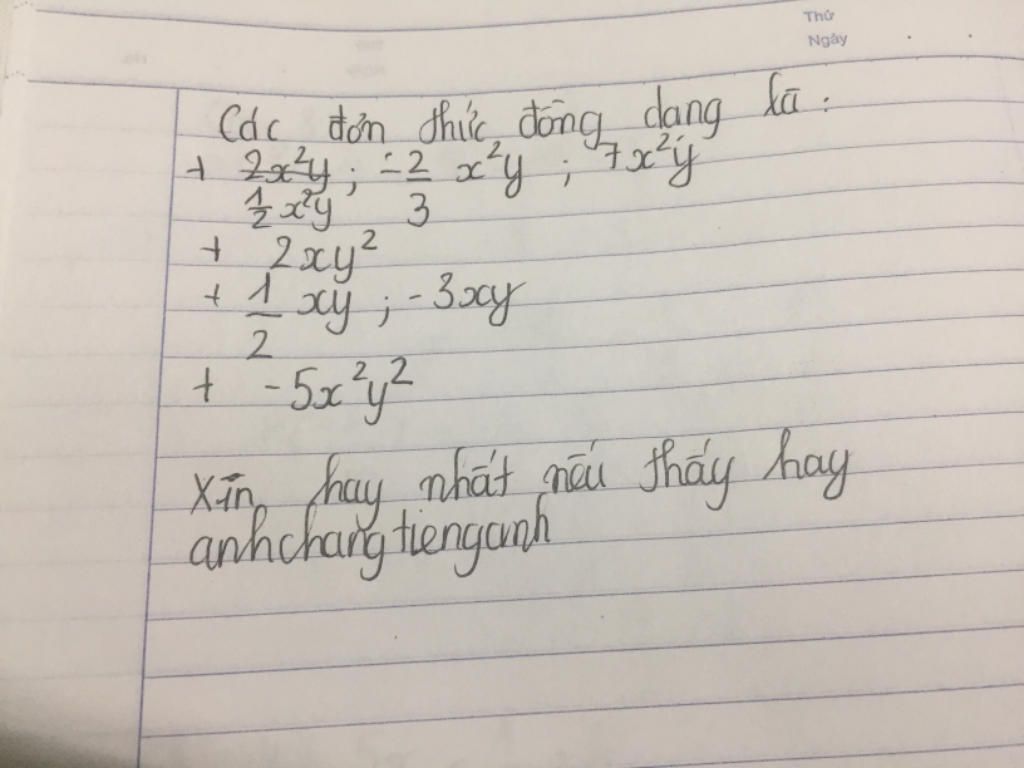 Thứ
Ngày
Các đơn thức đồng dạng là :
+ 2x²y ; -2/3 x²y ; 7x²y
1/2 x²y
+ 2xy²
+ 1/2 xy ; -3xy
+ -5x²y²
Xin hay nhất nếu thấy hay
anhchangtienganh